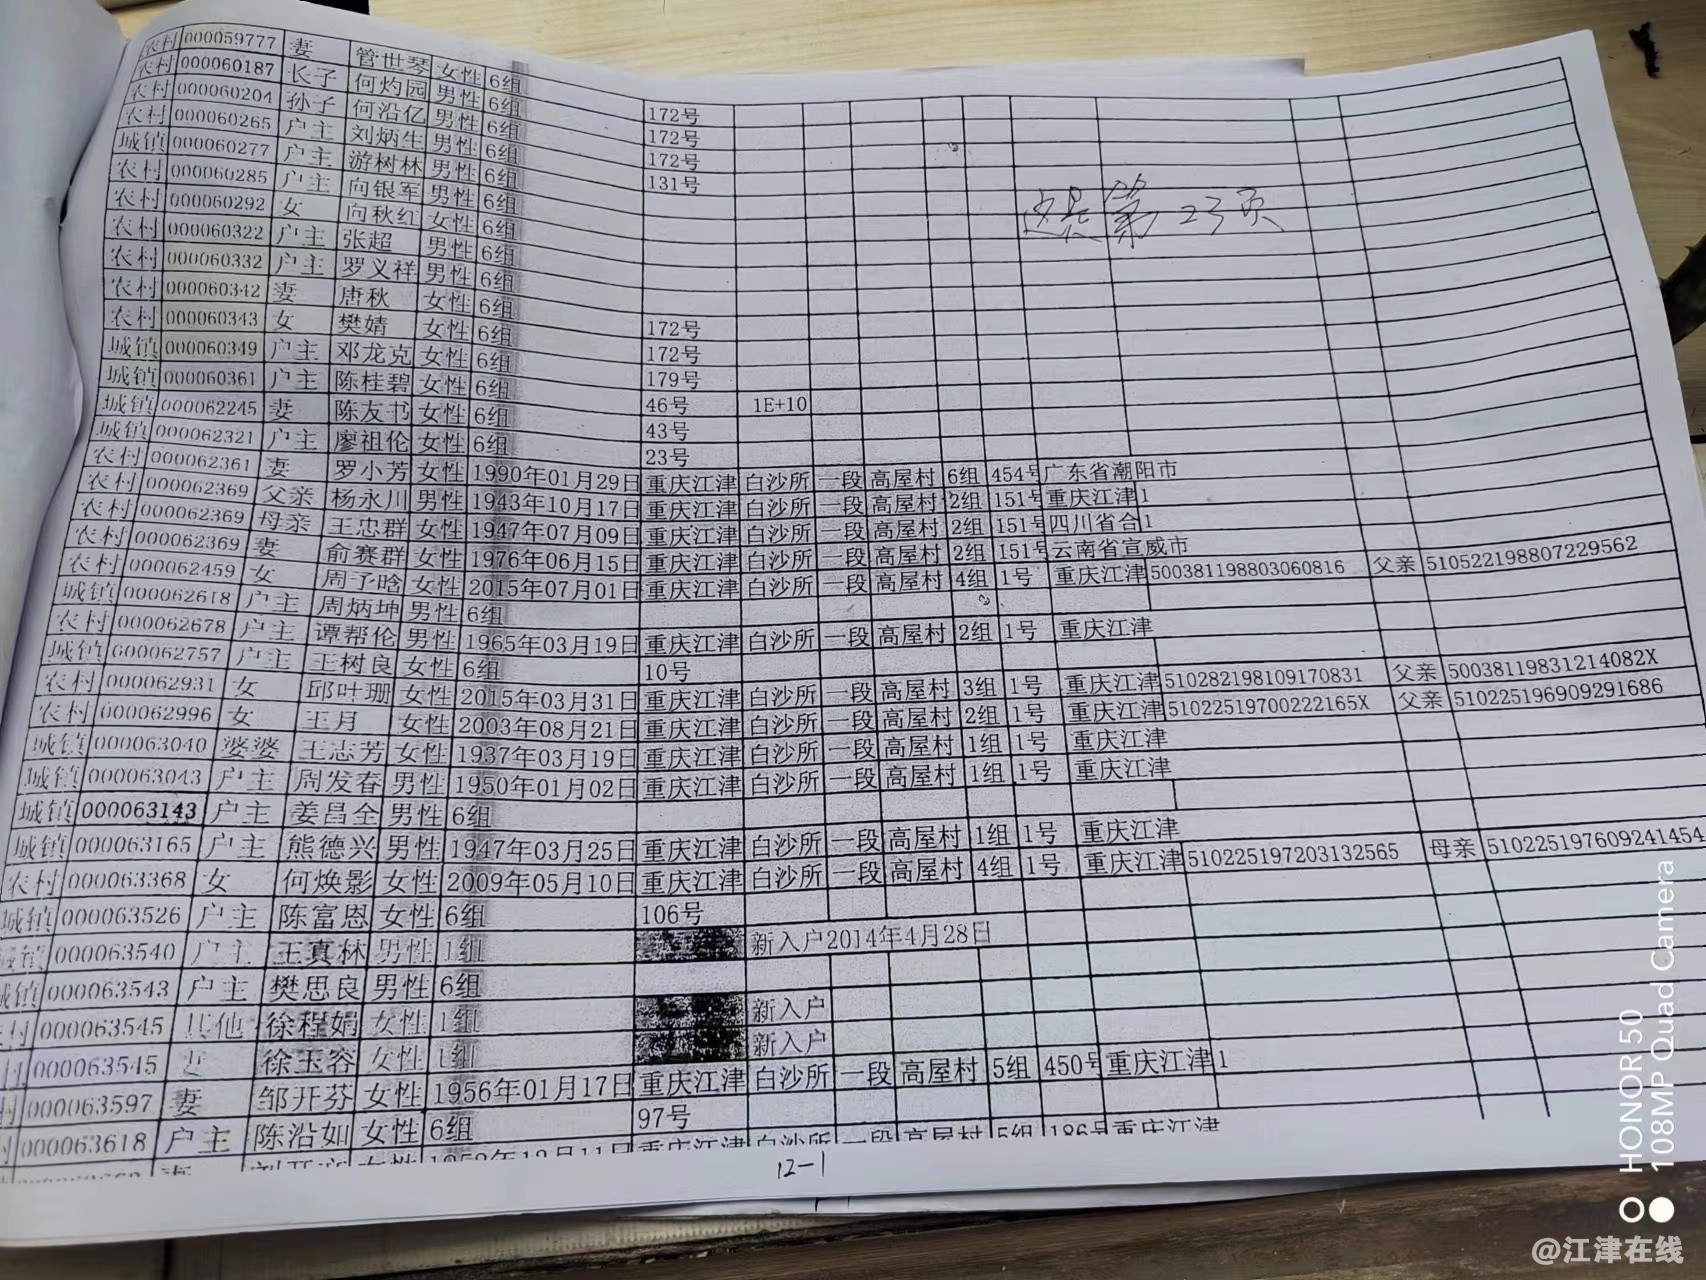 农村 000059777 妻 管世琴 女性 6组 172号
农村 000060187 长子 何灼园 男性 6组 172号
农村 000060204 孙子 何沿亿 男性 6组 172号
农村 000060265 户主 刘炳生 男性 6组 131号
城镇 000060277 户主 游树林 男性 6组
农村 000060285 户主 向银军 男性 6组
农村 000060292 女 向秋红 女性 6组
农村 000060322 户主 张超 男性 6组
农村 000060332 户主 罗义祥 男性 6组
农村 000060342 妻 唐秋 女性 6组 172号
农村 000060343 女 樊婧 女性 6组 172号
城镇 000060349 户主 邓龙克 女性 6组 179号
城镇 000060361 户主 陈桂碧 女性 6组 46号 1E+10
城镇 000062245 妻 陈友书 女性 6组 43号
城镇 000062321 户主 廖祖伦 女性 6组 23号
农村 000062361 妻 罗小芳 女性 1990年01月29日 重庆江津 白沙所 一段 高屋村 6组 454号 广东省潮阳市
农村 000062369 父亲 杨永川 男性 1943年10月17日 重庆江津 白沙所 一段 高屋村 2组 151号 重庆江津 1
农村 000062369 母亲 王忠群 女性 1947年07月09日 重庆江津 白沙所 一段 高屋村 2组 151号 四川省合 1
农村 000062369 妻 俞赛群 女性 1976年06月15日 重庆江津 白沙所 一段 高屋村 2组 151号 云南省宣威市
农村 000062459 女 周予晗 女性 2015年07月01日 重庆江津 白沙所 一段 高屋村 4组 1号 重庆江津 500381198803060816 父亲 510522198807229562
城镇 000062618 户主 周炳坤 男性 6组
农村 000062678 户主 谭帮伦 男性 1965年03月19日 重庆江津 白沙所 一段 高屋村 2组 1号 重庆江津
城镇 000062757 户主 王树良 女性 6组 10号
农村 000062931 女 邱叶珊 女性 2015年03月31日 重庆江津 白沙所 一段 高屋村 3组 1号 重庆江津 510282198109170831 父亲 50038119831214082X
农村 000062996 女 王月 女性 2003年08月21日 重庆江津 白沙所 一段 高屋村 2组 1号 重庆江津 51022519700222165X 父亲 510225196909291686
城镇 000063040 婆婆 王志芳 女性 1937年03月19日 重庆江津 白沙所 一段 高屋村 1组 1号 重庆江津
城镇 000063043 户主 周发春 男性 1950年01月02日 重庆江津 白沙所 一段 高屋村 1组 1号 重庆江津
城镇 000063143 户主 姜昌全 男性 6组
城镇 000063165 户主 熊德兴 男性 1947年03月25日 重庆江津 白沙所 一段 高屋村 1组 1号 重庆江津
农村 000063368 女 何焕影 女性 2009年05月10日 重庆江津 白沙所 一段 高屋村 4组 1号 重庆江津 510225197203132565 母亲 510225197609241454
城镇 000063526 户主 陈富恩 女性 6组 106号
城镇 000063540 户主 王真林 男性 1组 新入户2014年4月28日
城镇 000063543 户主 樊思良 男性 6组
村 000063545 其他 徐程娟 女性 1组 新入户
村 000063545 妻 徐玉容 女性 1组 新入户
村 000063597 妻 邹开芬 女性 1956年01月17日 重庆江津 白沙所 一段 高屋村 5组 450号 重庆江津 1
村 000063618 户主 陈沿如 女性 6组 97号
妻 女性 重庆江津 白沙所 一段 高屋村 5组 186号 重庆江津
这是第23页
12-1
HONOR 50
108MP Quad Camera
@江津在线